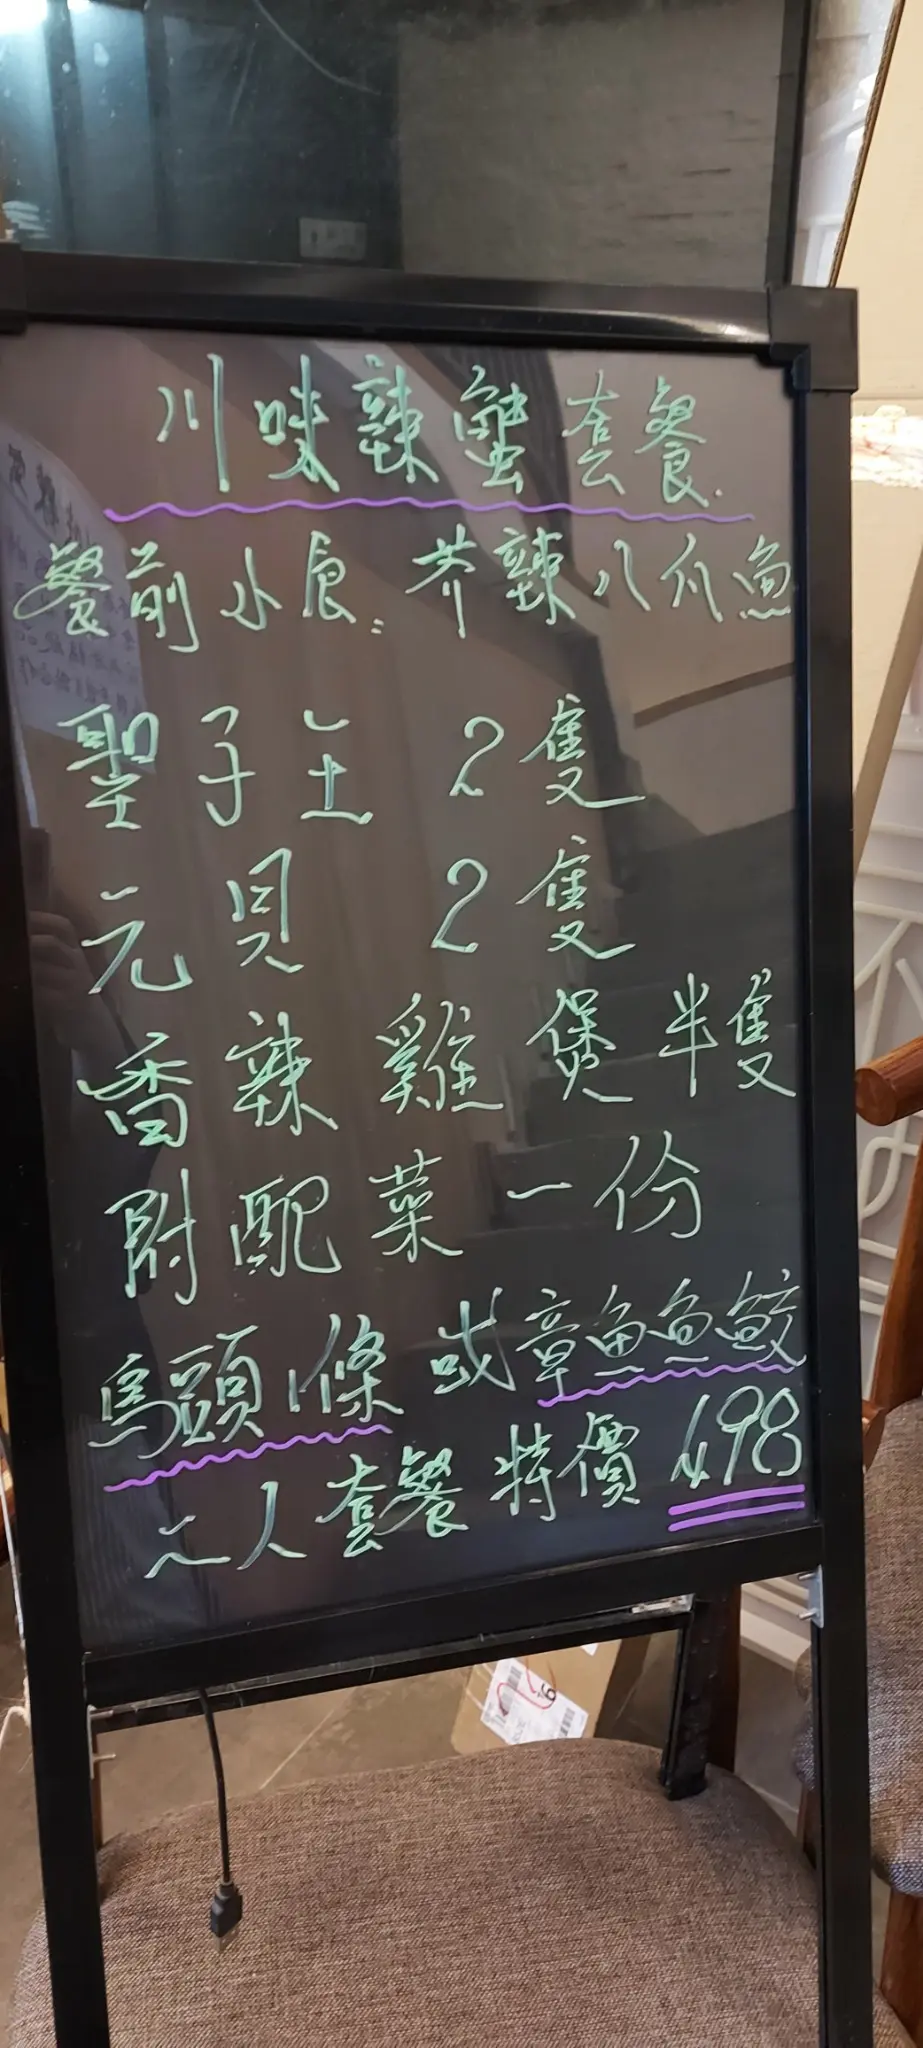 川味辣蟹套餐
餐前小食：芥辣八爪魚
聖子王 2隻
元貝 2隻
香辣雞煲半隻
附配菜一份
馬頭1條或章魚魚鮫
二人套餐特價498